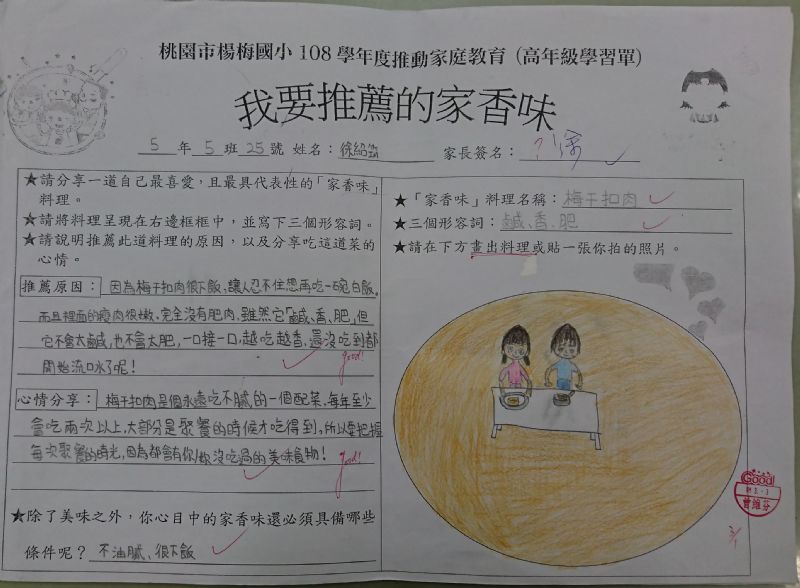 桃園市楊梅國小 108 學年度推動家庭教育 (高年級學習單)
我要推薦的家香味
5 年 5 班 25 號 姓名：徐紹筑 家長簽名：
★請分享一道自己最喜愛，且最具代表性的「家香味」
料理。
★請將料理呈現在右邊框框中，並寫下三個形容詞。
★請說明推薦此道料理的原因，以及分享吃這道菜的
心情。
推薦原因： 因為梅干扣肉很下飯，讓人忍不住想再吃一碗白飯。
而且裡面的瘦肉很嫩，完全沒有肥肉，雖然它「鹹、香、肥」但
它不會太鹹，也不會太肥，一口接一口，越吃越香，還沒吃到都
開始流口水了呢！
good!
心情分享： 梅干扣肉是個永遠吃不膩的一個配菜，每年至少
會吃兩次以上，大部分是聚餐的時候才吃得到，所以要把握
每次聚餐的時光，因為都會有你沒吃過的美味食物！
good!
★除了美味之外，你心目中的家香味還必須具備哪些
條件呢？ 不油膩、很下飯
★「家香味」料理名稱：梅干扣肉
★三個形容詞：鹹、香、肥
★請在下方畫出料理或貼一張你拍的照片。
Good
曾維芬